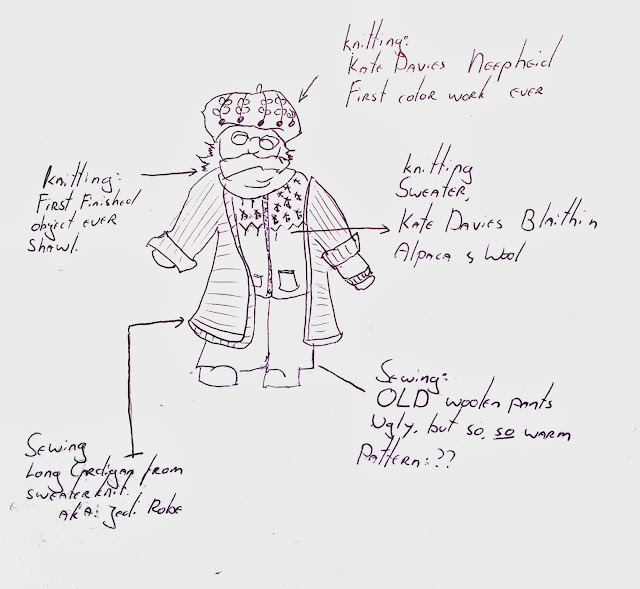 knitting:
Kate Davies Neepheid
First color work ever
Knitting:
First Finished
object ever
Shawl.
knitting
Sweater,
Kate Davies Blaithin
Alpaca & Wool
Sewing:
OLD woolen pants
Ugly, but so, so warm
Pattern: ??
Sewing
Long Cardigan from
sweaterknit.
AKA: Jedi Robe